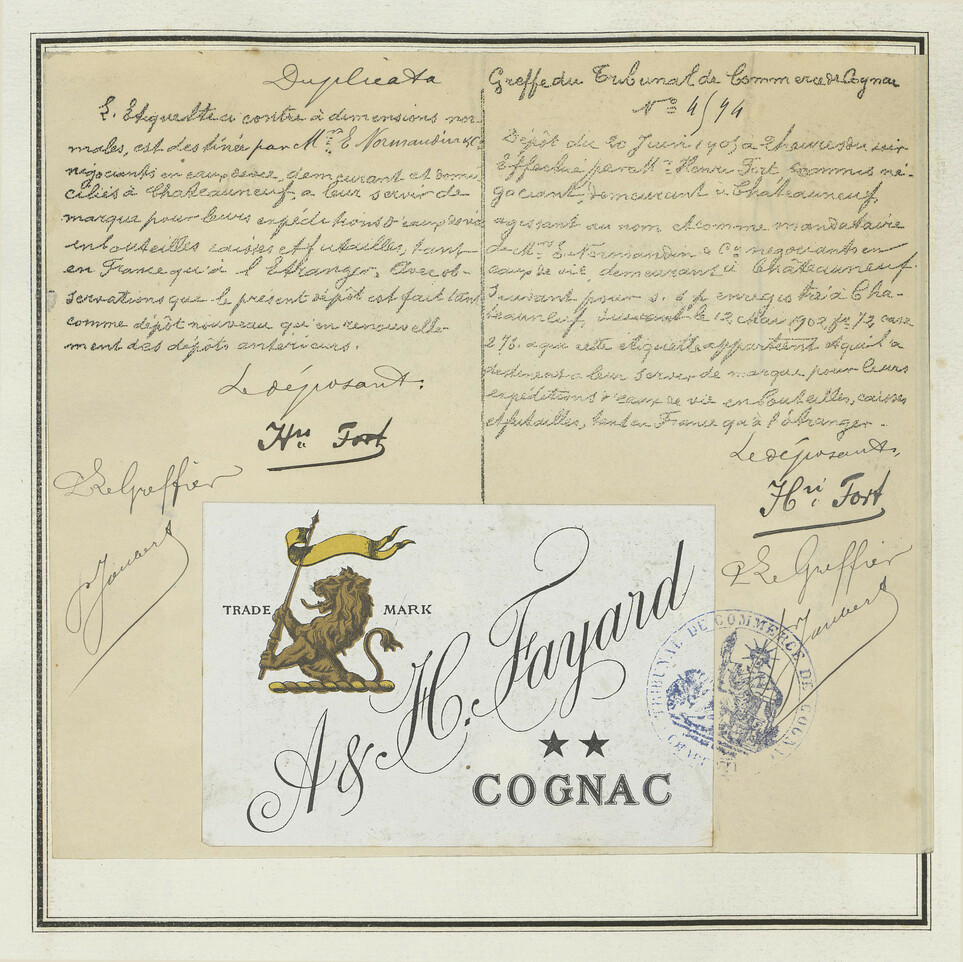 Duplicata
L'Etiquette ci contre à dimensions nor-
males, est destinée par Mrs E Normandin & Co
négociants en eaux de vie, demeurant et domi-
ciliés à Chateauneuf, a leur servir de
marque pour leurs expéditions d'eaux de vie
en bouteilles caisses et futailles, tant
en France qu'à l'Etranger. Avec ob-
servations que le présent dépôt est fait tant
comme dépôt nouveau qu'en renouvelle-
ment des dépôts antérieurs.
Le déposant.
Hri Fort
P Le Greffier
Joubert
Greffe du Tribunal de Commerce de Cognac
No 4/94
Dépôt du 20 Juin 1905 à heures du soir
Effectué par Mr Henri Fort commis né-
gociant, demeurant à Chateauneuf,
agissant au nom et comme mandataire
de Mrs E. Normandin & Co négociants en
eaux de vie demeurant à Chateauneuf.
Suivant pouvr s. s. p. enregistré à Cha-
teauneuf, le 12 Mai 1902 fo 72, case
276. a qui cette etiquette appartient et qui l'a
destinent a leur servir de marque pour leurs
expéditions d'eaux de vie en bouteilles, caisses
et futailles, tant en France qu'à l'étranger.
Le déposant,
Hri Fort
P Le Greffier
Joubert
TRADE MARK
A & H. Fayard
★★
COGNAC
TRIBUNAL DE COMMERCE DE COGNAC